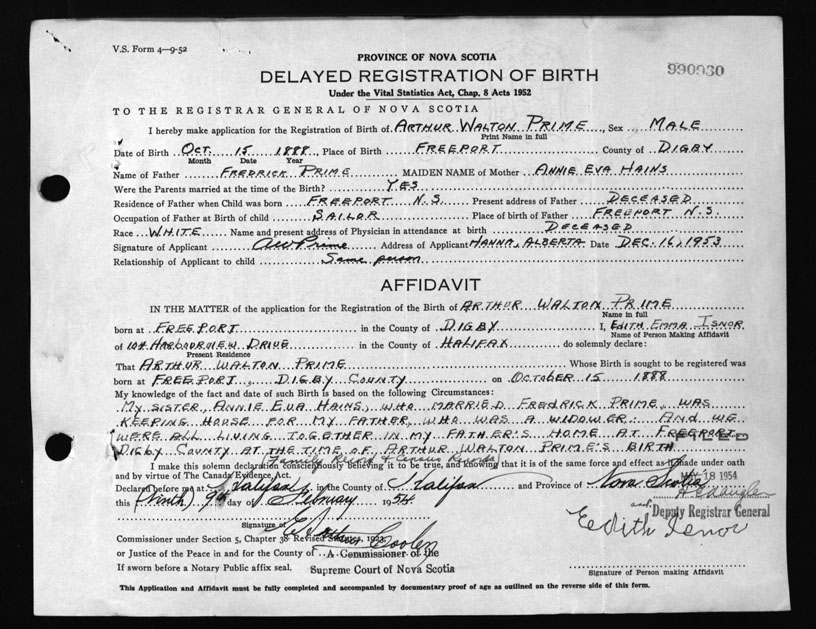 V.S. Form 4—9-52
PROVINCE OF NOVA SCOTIA
990930
DELAYED REGISTRATION OF BIRTH
Under the Vital Statistics Act, Chap. 8 Acts 1952
TO THE REGISTRAR GENERAL OF NOVA SCOTIA
I hereby make application for the Registration of Birth of ARTHUR WALTON PRIME, Sex MALE
Print Name in full
Date of Birth OCT. 15 1888, Place of Birth FREEPORT County of DIGBY
Month Date Year
Name of Father FREDRICK PRIME MAIDEN NAME of Mother ANNIE EVA HAINS
Were the Parents married at the time of the Birth? YES
Residence of Father when Child was born FREEPORT N.S. Present address of Father DECEASED
Occupation of Father at Birth of child SAILOR Place of birth of Father FREEPORT N.S.
Race WHITE Name and present address of Physician in attendance at birth DECEASED
Signature of Applicant AW Prime Address of Applicant HANNA, ALBERTA Date DEC. 16, 1953
Relationship of Applicant to child Same person
AFFIDAVIT
IN THE MATTER of the application for the Registration of the Birth of ARTHUR WALTON PRIME
Name in full
born at FREEPORT in the County of DIGBY I, EDITH EMMA ISNOR
Name of Person Making Affidavit
of 104 HARBOURVIEW DRIVE in the County of HALIFAX do solemnly declare:
Present Residence
That ARTHUR WALTON PRIME Whose Birth is sought to be registered was
born at FREEPORT, DIGBY COUNTY on OCTOBER 15 1888
My knowledge of the fact and date of such Birth is based on the following Circumstances:
MY SISTER, ANNIE EVA HAINS, WHO MARRIED FREDRICK PRIME, WAS
KEEPING HOUSE FOR MY FATHER, WHO WAS A WIDOWER: AND WE
WERE ALL LIVING TOGETHER IN MY FATHER'S HOME AT FREEPORT
FILED
DIGBY COUNTY AT THE TIME OF ARTHUR WALTON PRIME'S BIRTH
Family Record & Census Records
I make this solemn declaration conscienciously believing it to be true, and knowing that it is of the same force and effect as if made under oath
and by virtue of The Canada Evidence Act.
MAY 18 1954
Declared before me at Halifax in the County of Halifax and Province of Nova Scotia
this (Ninth) 9th day of February 1954
Deputy Registrar General
Signature of
Edith Isnor
Commissioner under Section 5, Chapter 38 Revised Statutes, 1923,
or Justice of the Peace in and for the County of A Commissioner of the
If sworn before a Notary Public affix seal. Supreme Court of Nova Scotia
Signature of Person making Affidavit
This Application and Affidavit must be fully completed and accompanied by documentary proof of age as outlined on the reverse side of this form.